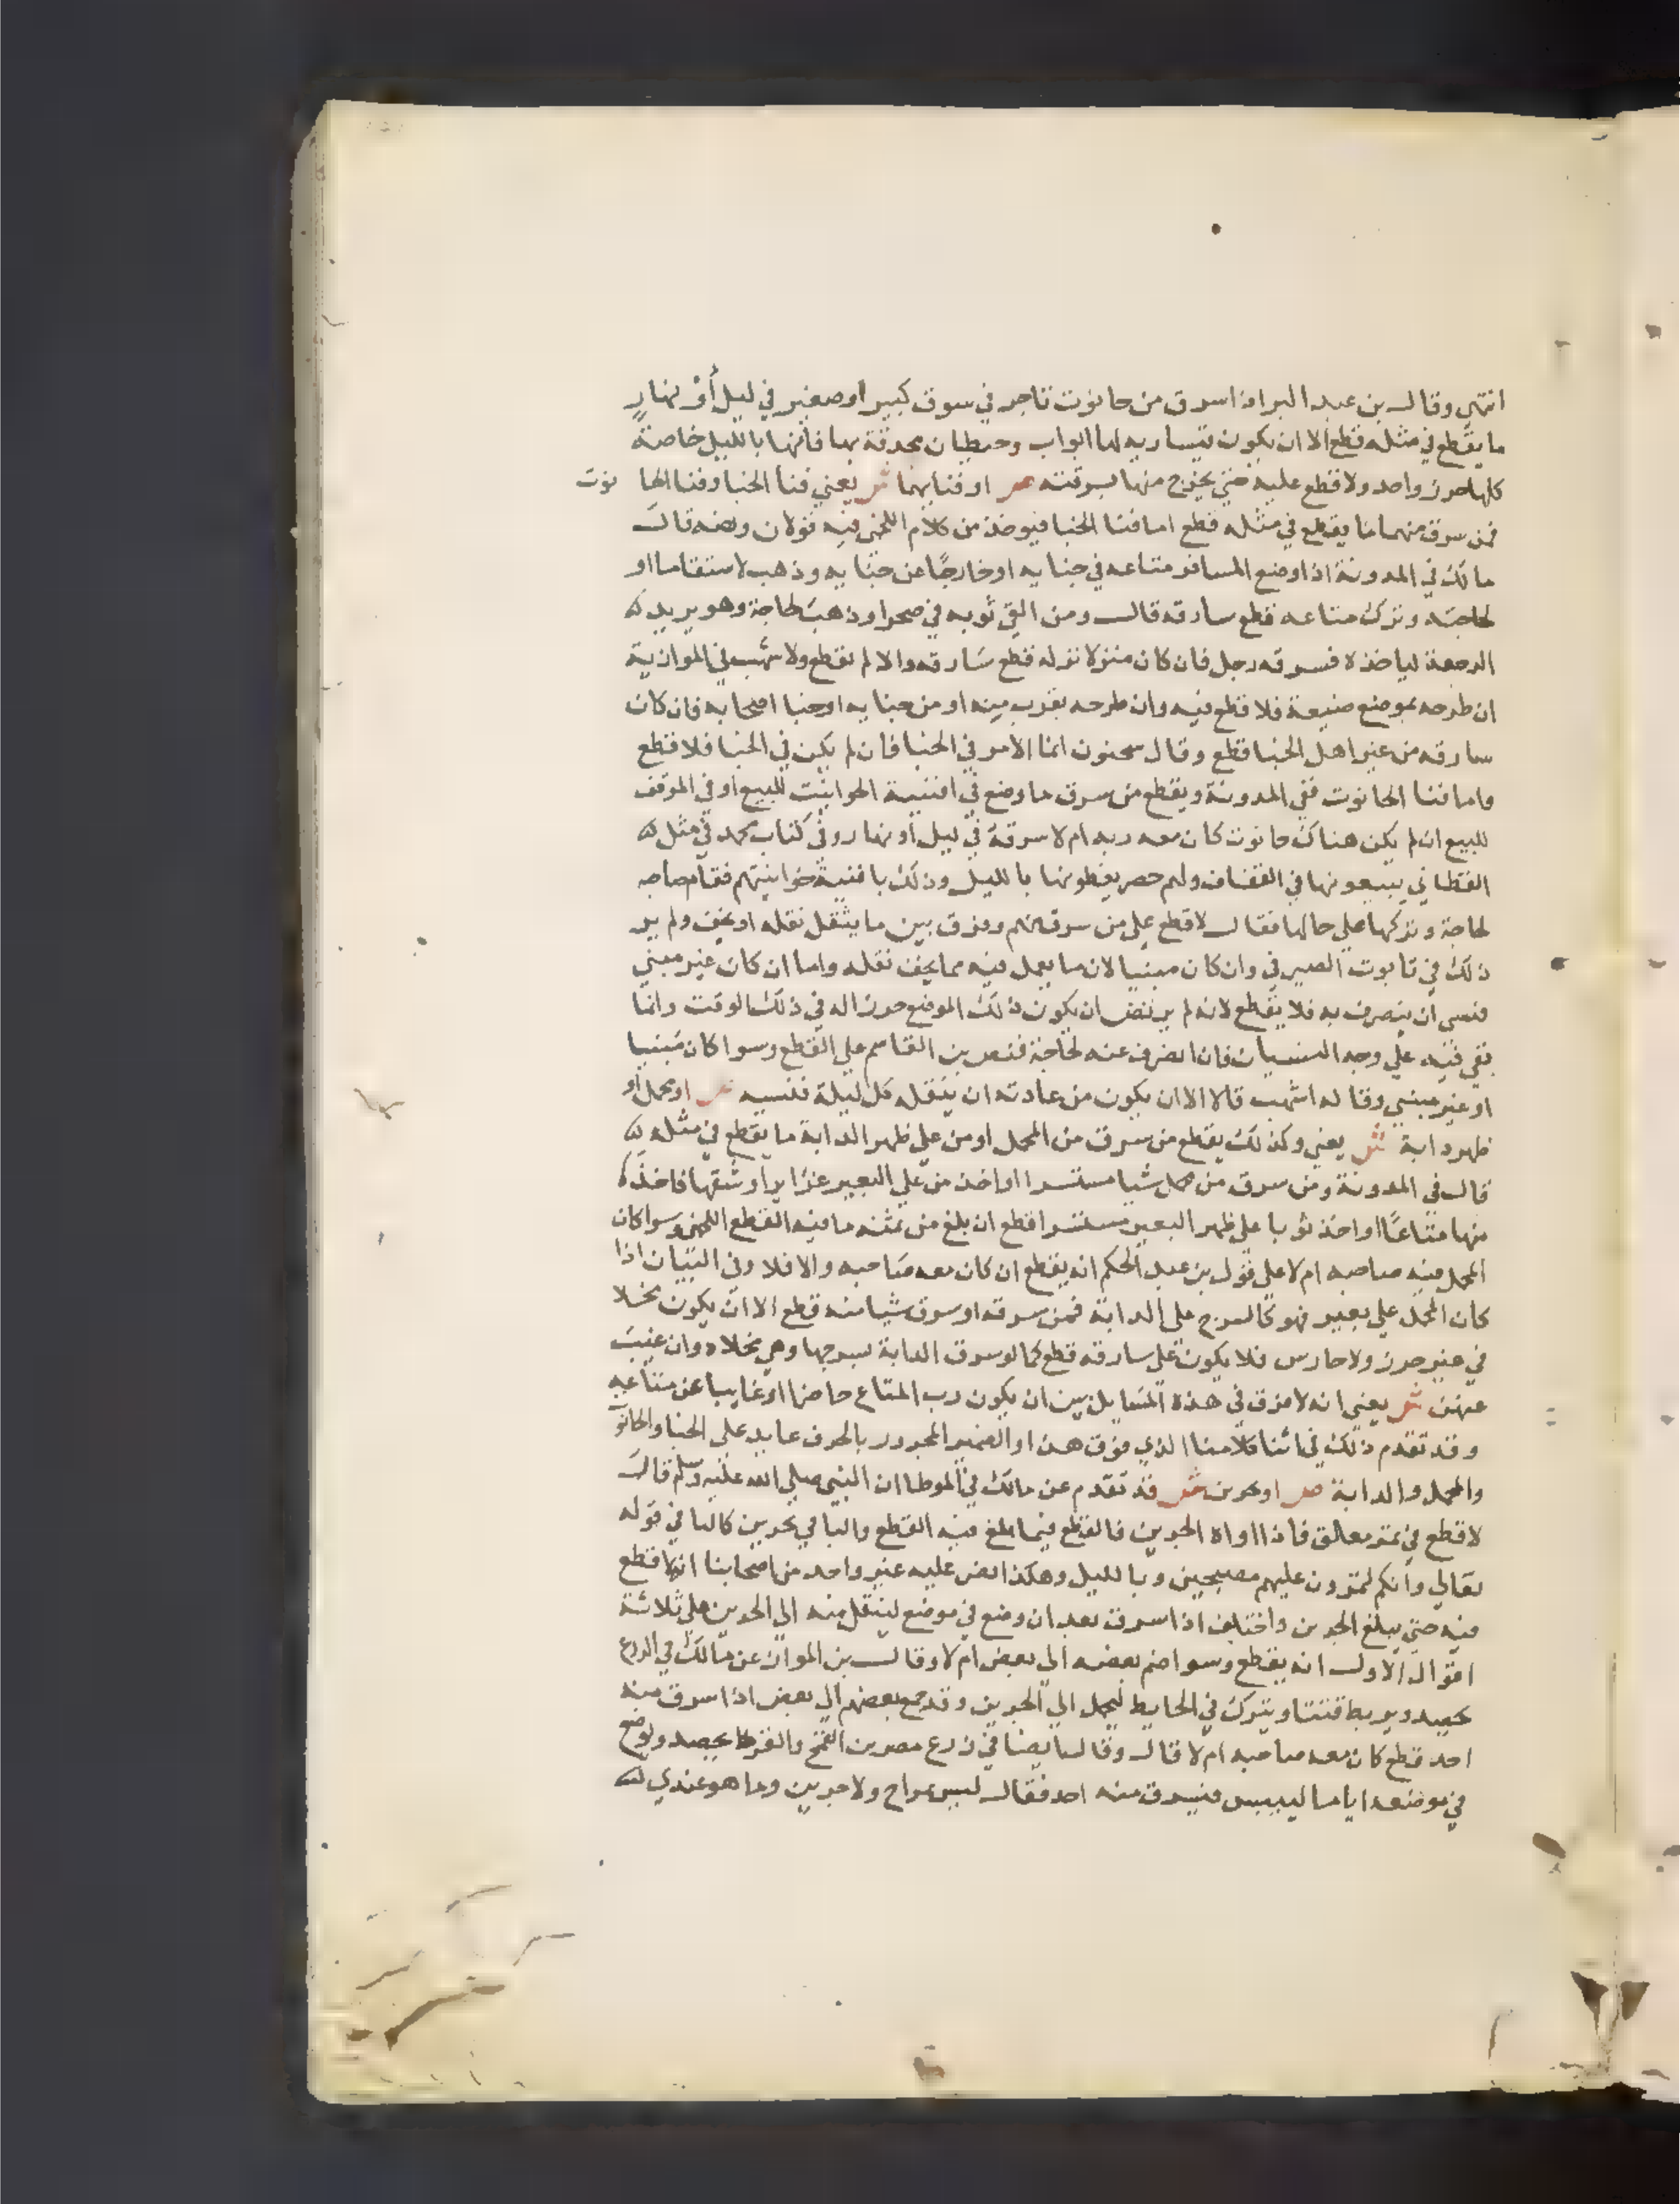 انتهى وقال بن عبد البر اذا سرق من حانوت تاجر في سوق كبير او صغير في ليل أَوْ نهارٍ
ما يقطع في مثله قطع الا ان يكون قيسارية لها ابواب وحيطان محدقة بها فانها بالليل خاصة
كلها حرز واحد ولا قطع عليه حتى يخرج منها بسرقته صر او فنايهما شر يعني فنا الخبا وفنا الحا نوت
فمن سرق منهما ما يقطع في مثله قطع اما فنا الخبا فيوخذ من كلام اللخمي فيه قولان ونصه قال
مالك في المدونة اذا وضع المسافر متاعه في خبايه او خارجًا عن خبايه وذهب لاستقاما او
لحاجته وترك متاعه قطع سارقه قال ومن القى ثوبه في صحرا وذهب لحاجة وهو يريد
الرجعة لياخذه فسرقه رجل فان كان منزلا نزله قطع سارقه والا لم يقطع ولاشهب في الموازية
ان طرحه بموضع ضيعة فلا قطع فيه وان طرحه بقرب منه او من خبايه او خبا اصحابه فان كان
سارقه من غير اهل الخبا قطع وقال سحنون انما الامر في الخبا فان لم يكن في الخبا فلا قطع
واما فنا الحانوت ففي المدونة ويقطع من سرق ما وضع في افنية الحوانيت للبيع او في الموقف
للبيع ان لم يكن هناك حانوت كان معه ربه ام لا سرقه في ليل او نهار وفي كتاب محمد في مثل
القطاني يبيعونها في القفاف ولهم حصر يغطونها بالليل وذلك بافنية حوانيتهم فقام صاحبه
لحاجة وتركها على حالها فقال لا قطع على من سرق منهم وفرق بين ما يثقل نقله او يخف ولم ير
ذلك في تابوت الصيرفي وان كان مبنيا لان ما يجعل فيه مما يخف نقله واما ان كان غير مبني
فنسي ان ينصرف به فلا يقطع لانه لم يرتض ان يكون ذلك الموضع حرزا له في ذلك الوقت وانما
بقي فيه على وجه النسيان فان انصرف عنه لحاجة فنص بن القاسم على القطع وسوا كان مبنيا
او غير مبني وقاله اشهب قالا الا ان يكون من عادته ان ينقله كل ليلة فنسيه صر او محمل او
ظهر دابة شر يعني وكذلك يقطع من سرق من المحمل او من على ظهر الدابة ما يقطع في مثله
قال في المدونة ومن سرق من محمل شيا مستسرا او اخذ من على البعير غراير او شقها فاخذ
منها متاعًا او اخذ ثوبا على ظهر البعير مستترا قطع ان بلغ من ثمنه ما فيه القطع اللخمي وسوا كان
المحمل فيه صاحبه ام لا على قول بن عبد الحكم انه يقطع ان كان معه صاحبه والا فلا وفي التبيان اذا
كان المحمل على بعير فهو كالسرج على الدابة فمن سرقه او سرق شيا منه قطع الا ان يكون مخلا
في غير حرز ولا حارس فلا يكون على سارقه قطع كما لو سرق الدابة بسرجها وهي مخلاه وان غيب
عنهن شر يعني انه لا فرق في هذه المسايل بين ان يكون رب المتاع حاضرا او غايبا عن متاعه
وقد تقدم ذلك في اثنا كلامنا الذي فوق هذا والضمير المجرور بالحرف عايد على الخبا والحانوت
والمحمل والدابة صر او بجرين شر قد تقدم عن مالك في الموطا ان النبي صلى الله عليه وسلم قال
لا قطع في ثمر معلق فاذا اواه الجرين فالقطع فيما بلغ فيه القطع والبا في بجرين كالبا في قوله
تعالى وانكم لتمرون عليهم مصبحين وبالليل وهكذا نص عليه غير واحد من اصحابنا انه لا قطع
فيه حتى يبلغ الجرين واختلف اذا سرق بعد ان وضع في موضع لينقل منه الى الجرين على ثلاثة
اقوال الاول انه يقطع وسوا ضم بعضه الى بعض ام لا وقال بن المواز عن مالك في الزرع
يحصد ويربط قتتا ويترك في الحايط ليحمل الى الجرين وقد جمع بعضهم الى بعض اذا سرق منه
احد قطع كان معه صاحبه ام لا قال وقال ايضا في زرع مصر من القمح والقرط يحصد ويوضع
في موضعه اياما لييبس فيسرق منه احد فقال ليس بمراح ولا جرين وما هو عندي